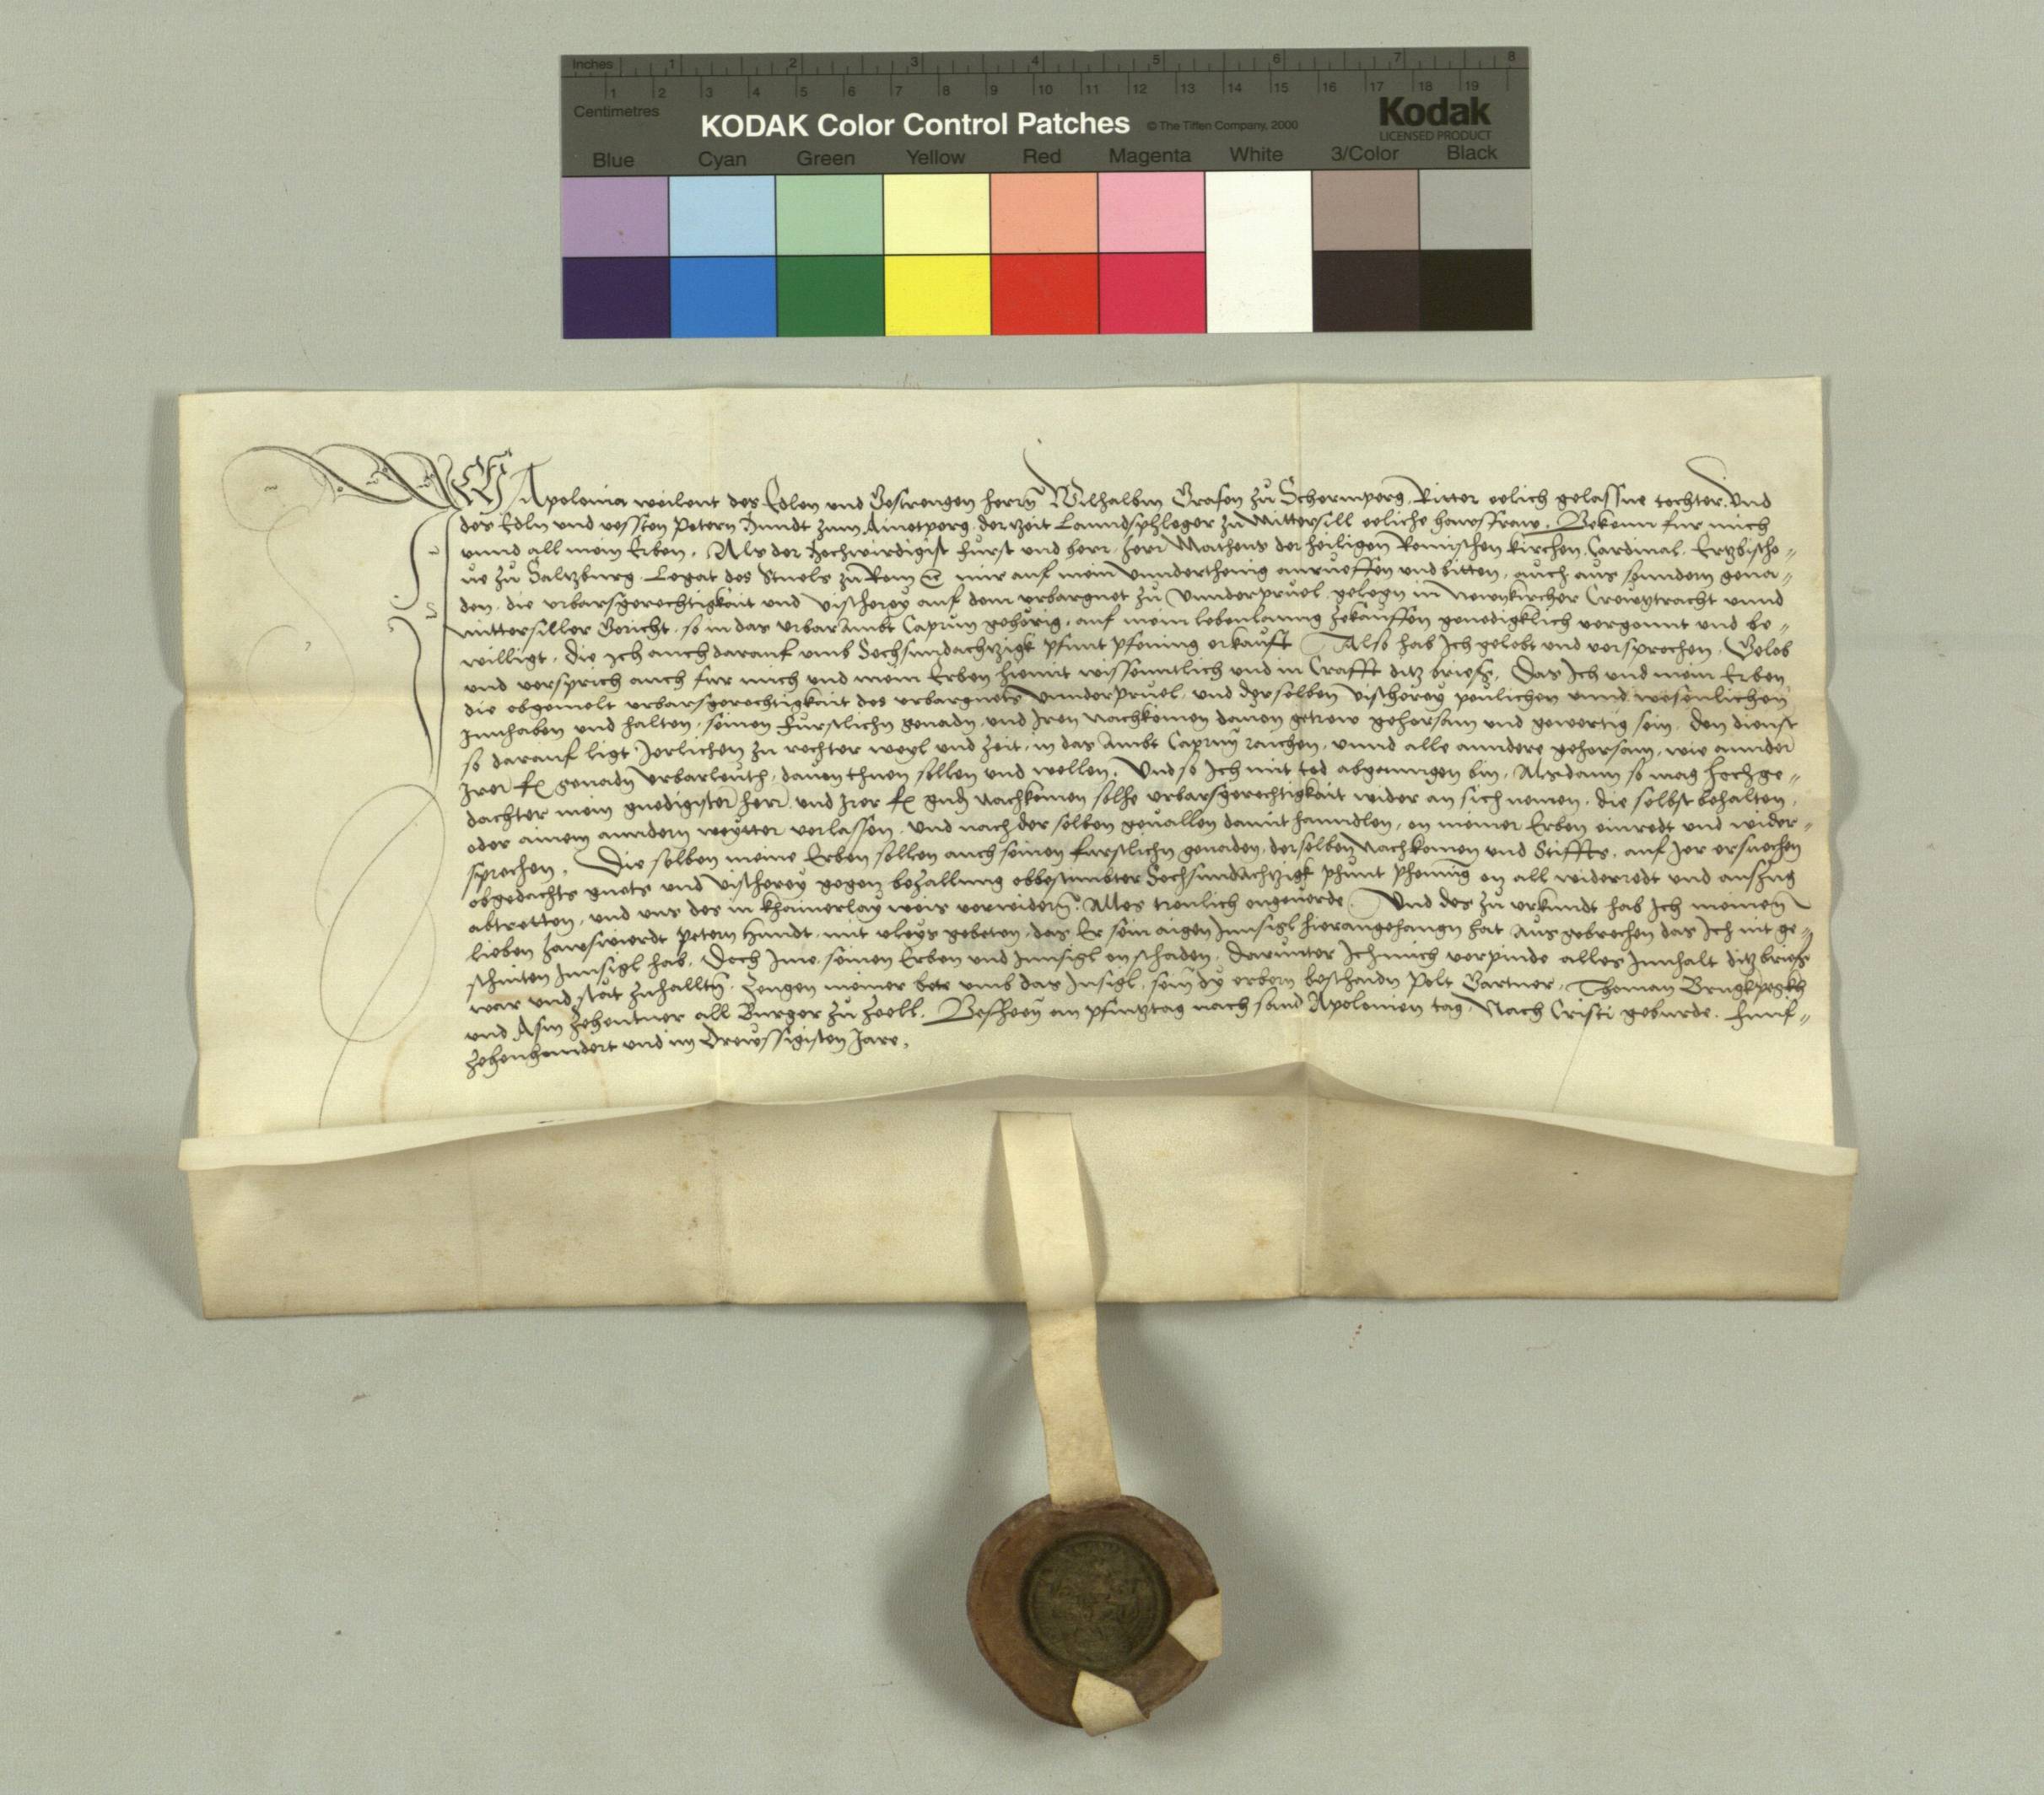 Inches 1 2 3 4 5 6 7 8
1 2 3 4 5 6 7 8 9 10 11 12 13 14 15 16 17 18 19
Centimetres
KODAK Color Control Patches © The Tiffen Company, 2000 Kodak
LICENSED PRODUCT
Blue Cyan Green Yellow Red Magenta White 3/Color Black
ICH Apolonia weilent des Edlen und Gestrengen herrn Wilhalbm Grafen zu Schermperg Ritter eelich gelassne tochter, Und
des Edln und vessten Petern Hundt zum Ainetperg derzeit Lanndsphleger zu Mittersill eeliche hawsfraw. Bekenn fur mich
unnd all mein Erben. Als der Hochwirdigist furst und herr herr Matheus der heiligen Romischen kirchen Cardinal Ertzbischo„
ve zu Saltzburg Legat des Stuels zu Rom mir auf mein unnderthenig anrueffen und bitten, auch aus sonndern gena„
den, die urbarsgerechtigkait und vischerey auf dem urbarguet zu Unnderpruel gelegn in Newnkircher Crewtztracht unnd
Mittersiller Gericht, so in das urbar Ambt Caprun gehörig, auf mein lebenlanng zekauffen genedigklich vergonnt und be„
willigt, die ich auch darauf umb Sechsundachtzigk pfunt pfening erkauft Also hab Ich gelobt und versprochen, Gelob
und versprich auch fur mich und mein Erben hiemit wissenntlich und in Crafft ditz briefs. Das Ich und mein Erben
die obgemelt urbarsgerechtigkait des urbarguets Unnderpruel und derselben vischerey peulichen unnd wesenlichen
Innhaben und halten, seinen furstlichn genadn und Iren Nachkomen davon getrew gehorsam und gewertig sein. Den dienst
so darauf ligt Jerlichen zu rechter weyl und zeit, in das Ambt Caprun raichen, unnd alle anndere gehorsam, wie annder
Irer f genadn urbarleuth, davon thuen sollen und wellen. Und so Ich mit tod abgenngen bin, Alsdann so mag hochge„
dachter mein gnedigister herr und Irer f gnd Nachkomen solhe urbarsgerechtigkait wider an sich nemen, die selbst behalten,
oder ainem anndern weytter verlassen, und nach derselben gevallen damit hanndlen, on meiner Erben einredt und wider„
sprechen. Die selben meine Erben sollen auch seinen furstlichn genaden, derselben Nachkomen und Stiffts, auf Jer ersuechen
obgedachts guets und vischerey gegen bezallung obbestimbter Sechsundachtzigk phunt phening on all widerredt und auszug
abtretten, und uns des in khainerlay weis verwidern. Alles treulich ongeverde. Und des zu urkundt hab Ich meinen
lieben hawswierdt Petern Hundt mit vleys gebeten, das Er sein aigen Innsigl hieran gehangn hat Aus gebrechen das Ich nit ge„
schniten Innsigl hab. Doch Ime, seinen Erben und Innsigl on schaden. Darunter Ich mich verpinde alles Innhalt ditz briefs
war und stät zuhalltn. Zeugen meiner bete umb das Insigl sein dy erbern beschaidn Polt Gartner, Thoman Brugkpegkh
und Asm Zehentner all Burger zu Zeell. Beschehen an pfintztag nach sand Apolonien tag. Nach Cristi geburde. funf„
zehenhundert und im Drewssigisten Jare.